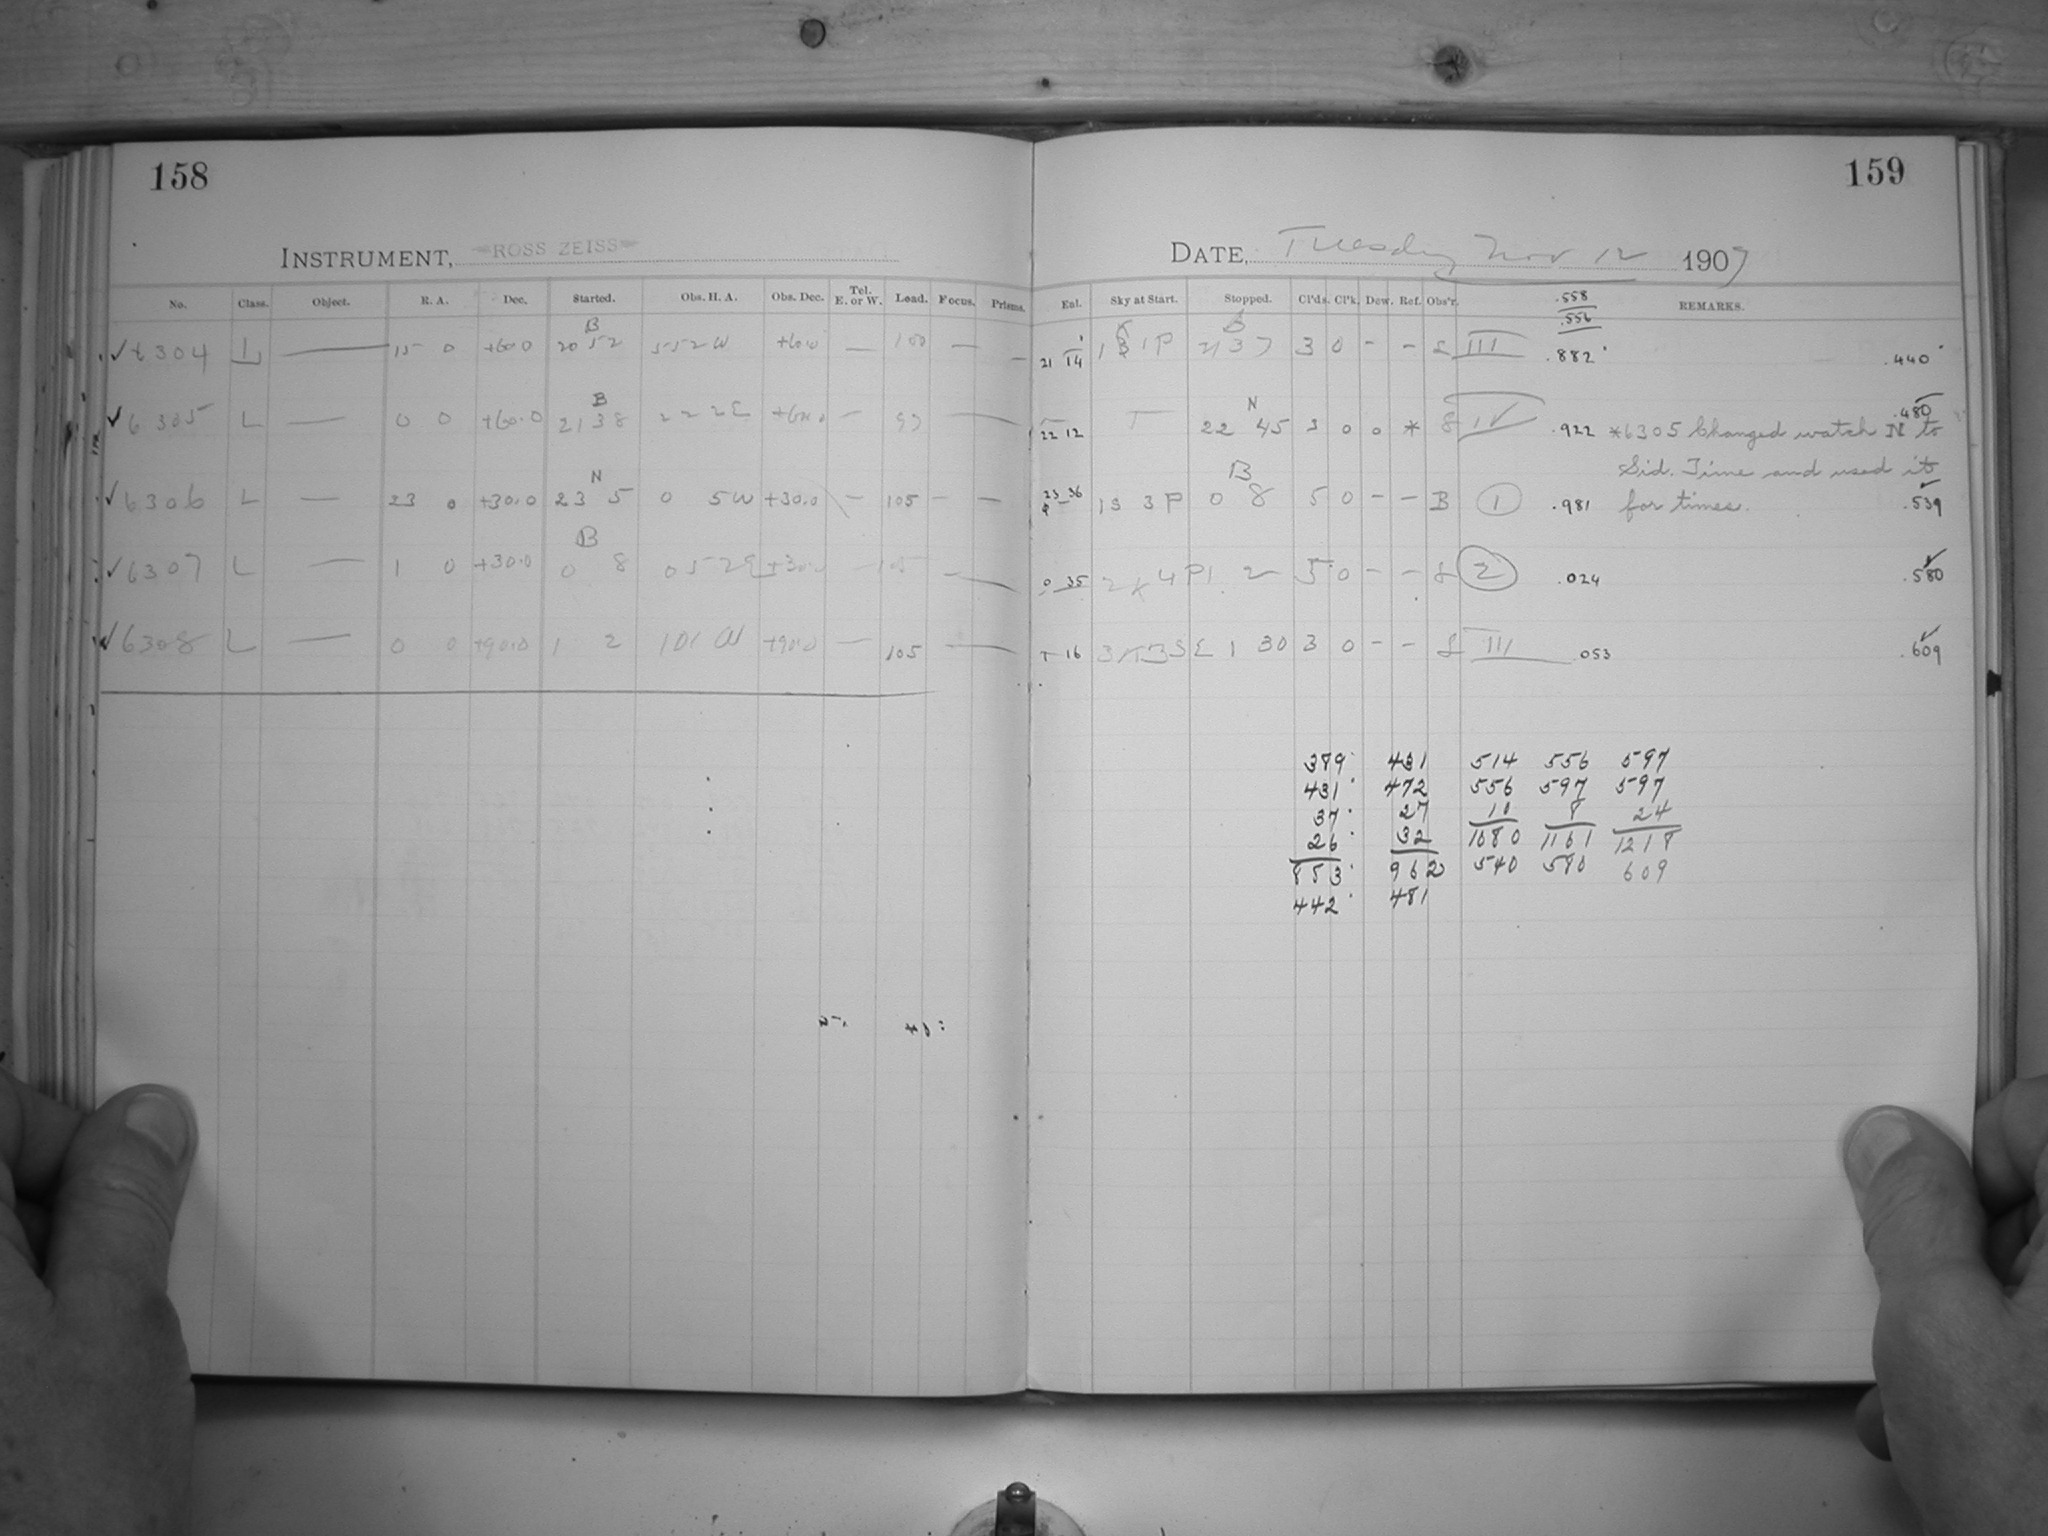 158
159
INSTRUMENT, ROSS ZEISS
DATE, Tuesday Nov 12 1907
No. Class. Object. R. A. Dec. Started. Obs. H. A. Obs. Dec. Tel. E. or W. Load. Focus. Prisms. Enl. Sky at Start. Stopped. Cl'ds. Cl'k. Dew. Ref. Obs'r. .558 REMARKS.
.556
B
✓ 6304 L — 15 0 +60.0 20 52 5 52 W +60.0 — 100 — — 21 14 1P 21 37 3 0 - - III .882 .440
B N .480
✓ 6305 L — 0 0 +60.0 21 38 2 22 E +60.0 — — 22 12 22 45 3 0 0 * IV .922 *6305 Changed watch N to
Sid. Time and used it
N B
✓ 6306 L — 23 0 +30.0 23 5 0 5 W +30.0 — 105 — — 23 36 13 3P 0 8 5 0 - - B 1 .981 for times. .539
B
✓ 6307 L — 1 0 +30.0 0 8 0 52 E +30.0 — 105 — 0 35 4P 1 2 5 0 - - 2 .024 .580
✓ 6308 L — 0 0 +90.0 1 2 1 01 W +90.0 — 105 — 16 1 30 3 0 - - III .053 .609
389 431 514 556 597
431 472 556 597 597
37 27 10 8 24
26 32 1080 1161 1218
853 962 540 580 609
442 481